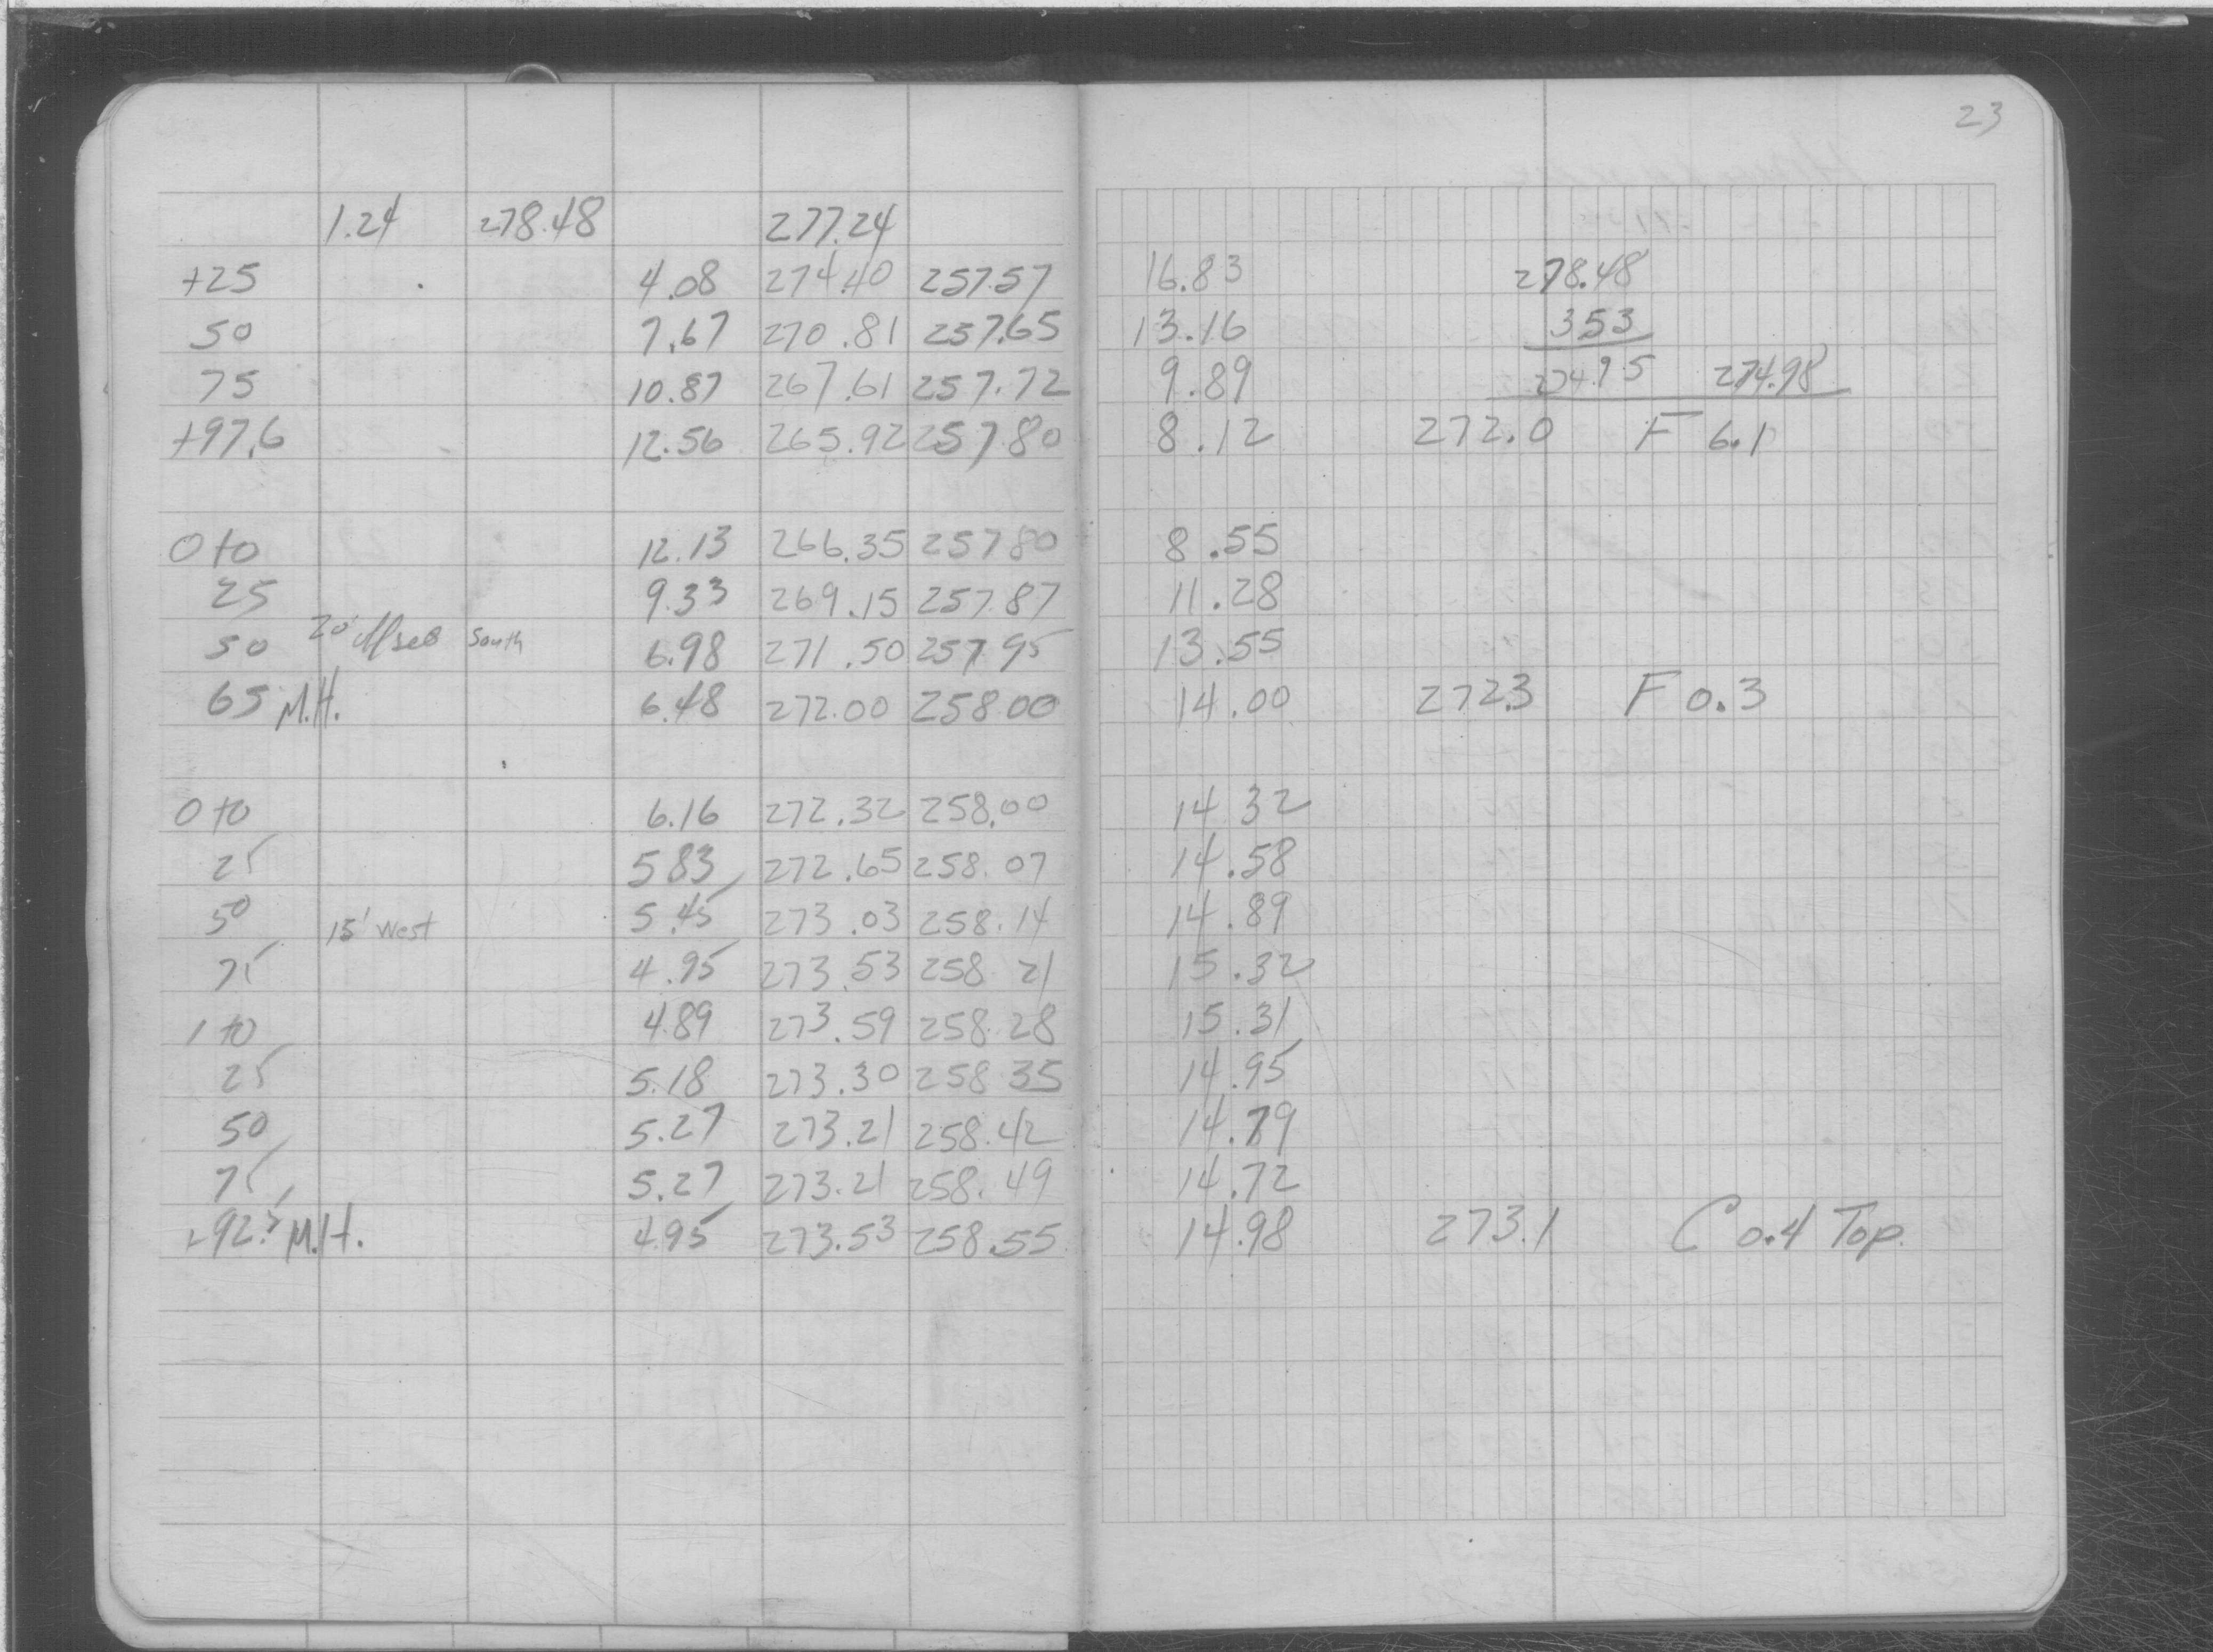 23
1.24 278.48 277.24
+25 4.08 274.40 257.57 16.83 278.48
50 7.67 270.81 257.65 13.16 353
75 10.87 267.61 257.72 9.89 274.95 274.98
+97.6 12.56 265.92 257.80 8.12 272.0 F 6.1
0+0 12.13 266.35 257.80 8.55
25 9.33 269.15 257.87 11.28
50 20' South 6.98 271.50 257.95 13.55
65 M.H. 6.48 272.00 258.00 14.00 272.3 F 0.3
0+0 6.16 272.32 258.00 14.32
25 5.83 272.65 258.07 14.58
50 15' West 5.45 273.03 258.14 14.89
75 4.95 273.53 258 21 15.32
1+0 4.89 273.59 258.28 15.31
25 5.18 273.30 258 35 14.95
50 5.27 273.21 258.42 14.79
75 5.27 273.21 258.49 14.72
+92.5 M.H. 4.95 273.53 258.55 14.98 273.1 C 0.4 Top.